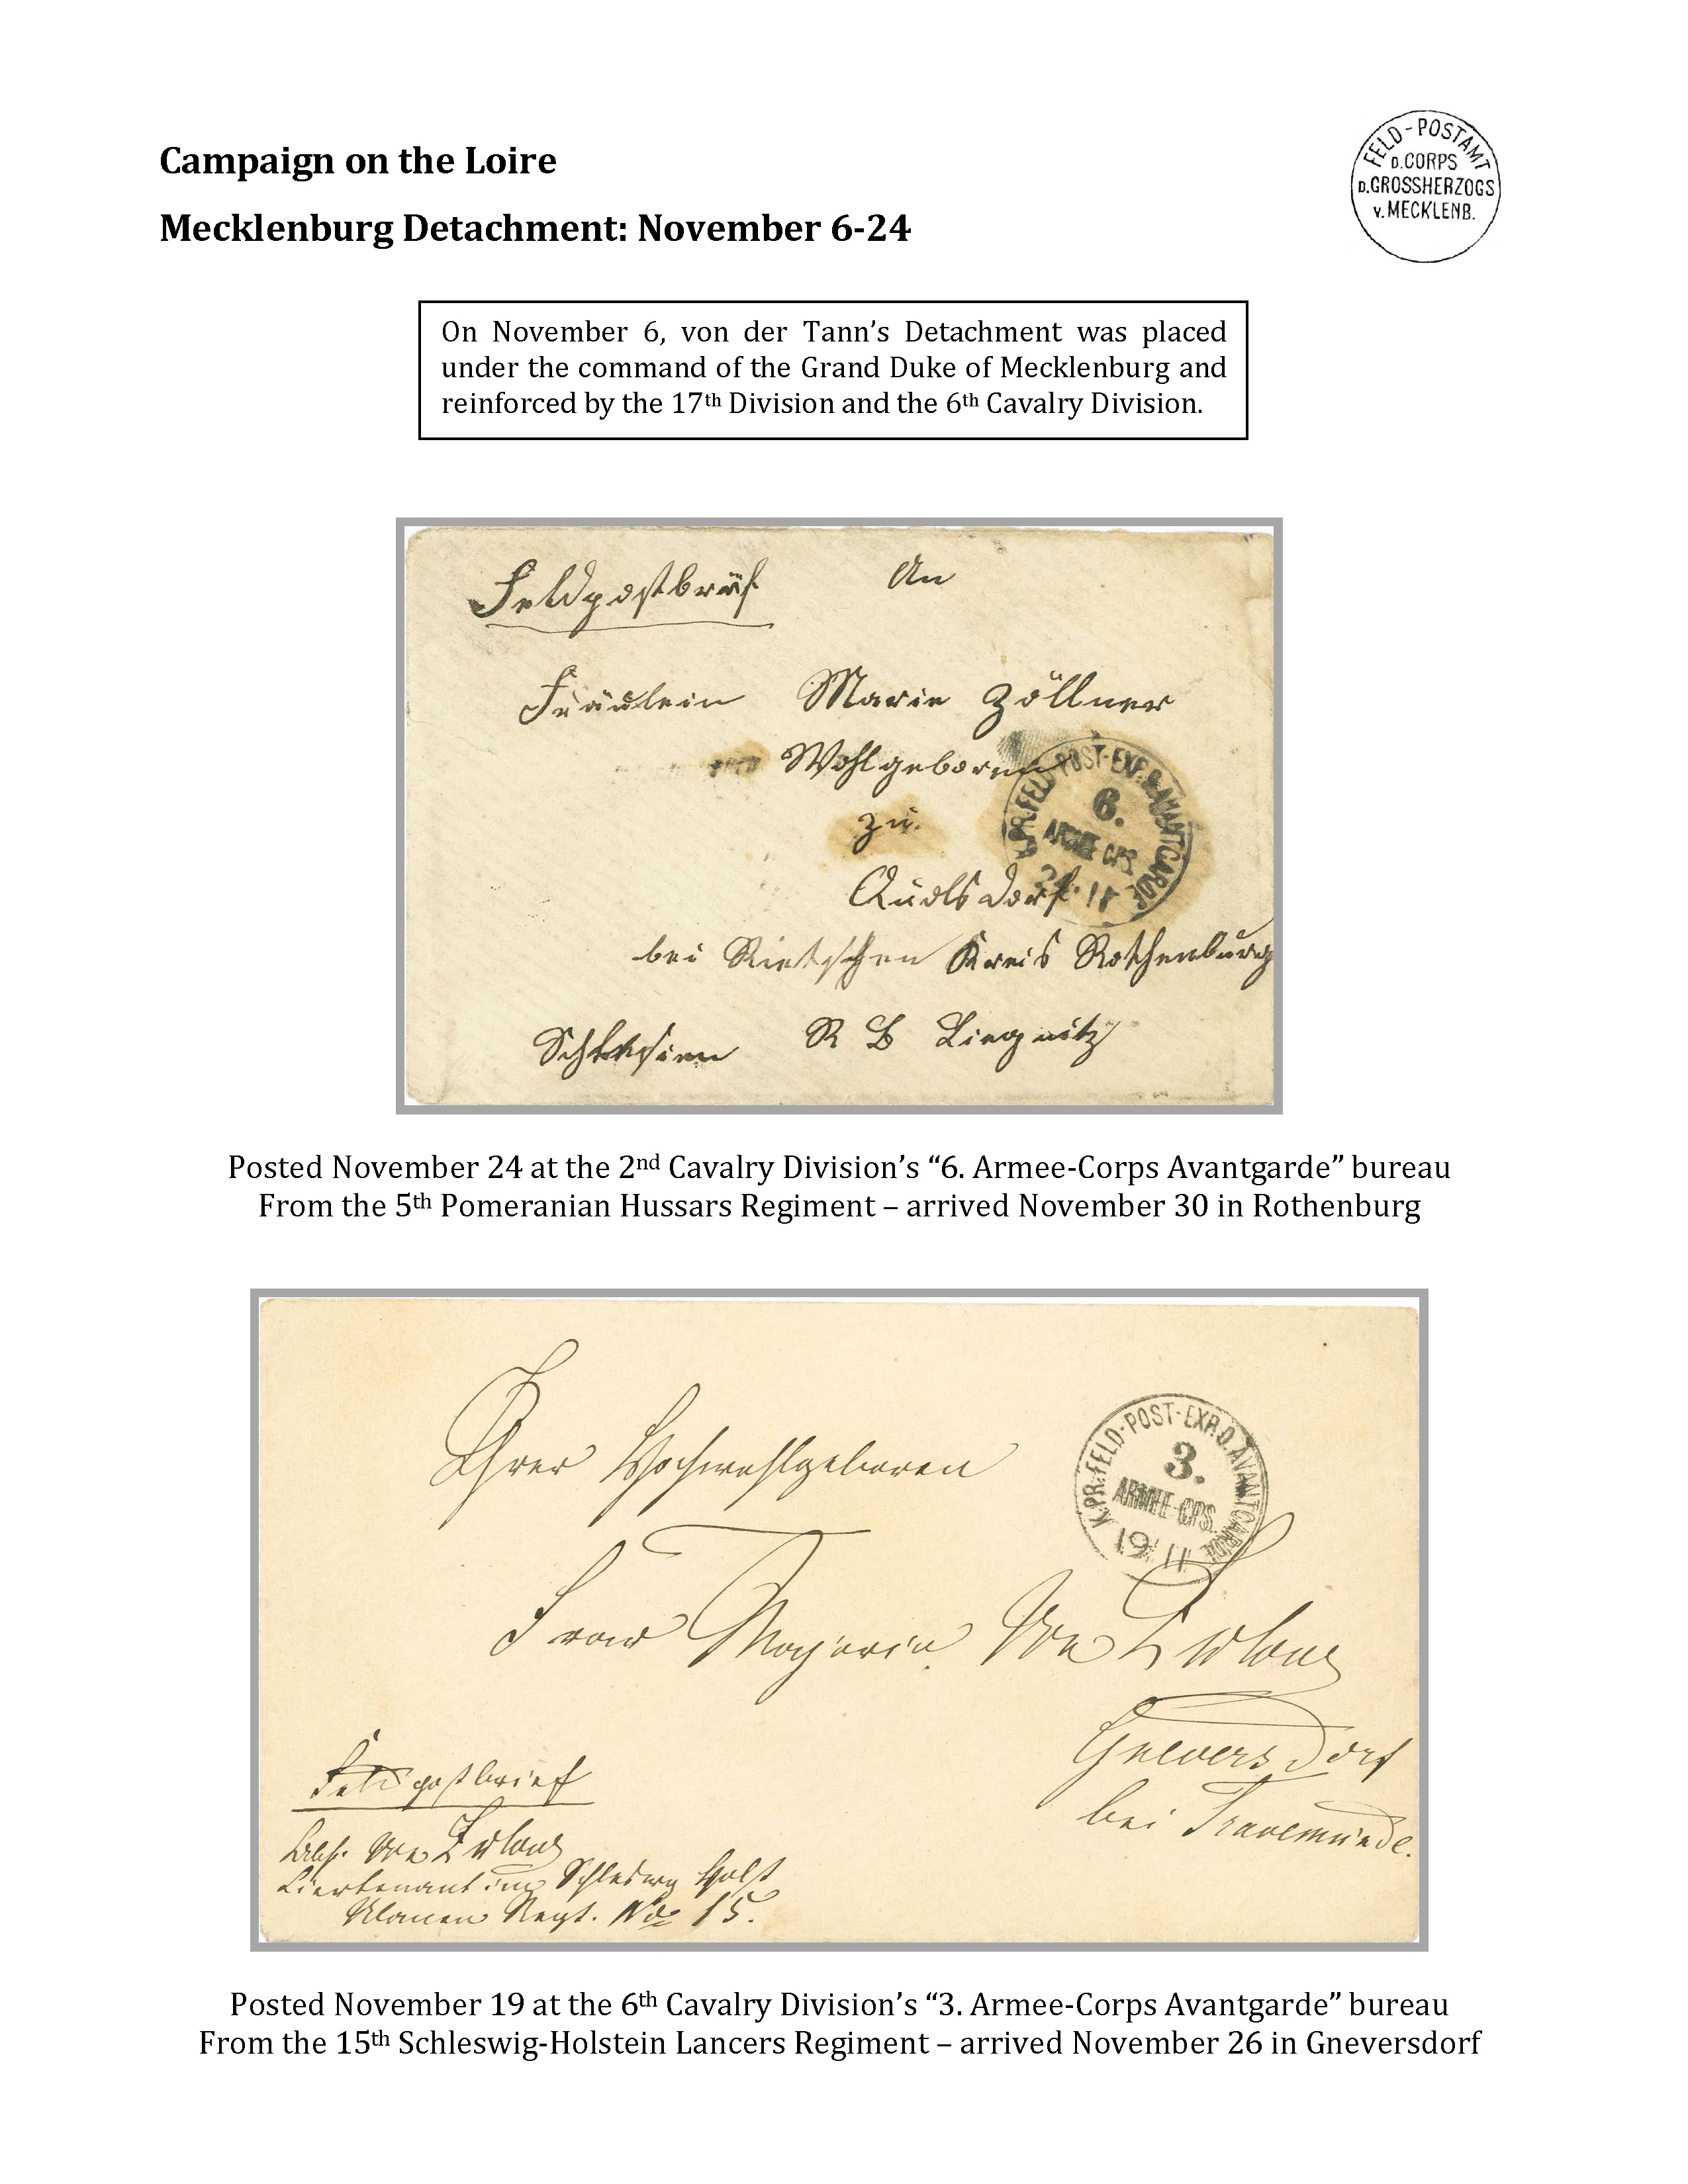 Campaign on the Loire
Mecklenburg Detachment: November 6-24
FELD-POSTAMT
D.CORPS
D.GROSSHERZOGS
v.MECKLENB.
On November 6, von der Tann’s Detachment was placed
under the command of the Grand Duke of Mecklenburg and
reinforced by the 17th Division and the 6th Cavalry Division.
Feldpostbrief
An
Fräulein Marie Zöllner
Wohlgeboren
zu
bei Rietschen Kreis Rothenburg
Schlesien R B Liegnitz
K.PR.FELD-POST-EXP.D.AVANTGARDE
6.
ARMEE-CPS
24 11
Posted November 24 at the 2nd Cavalry Division’s “6. Armee-Corps Avantgarde” bureau
From the 5th Pomeranian Hussars Regiment – arrived November 30 in Rothenburg
Ihrer Hochwohlgeboren
Frau Majorin von
Gneversdorf
bei Travemünde.
K.PR.FELD-POST-EXP.D.AVANTGARDE
3.
ARMEE-CPS.
19 11
Feldpostbrief
Abs. von
Lieutenant im Schleswig Holst
Ulanen Regt. No 15.
Posted November 19 at the 6th Cavalry Division’s “3. Armee-Corps Avantgarde” bureau
From the 15th Schleswig-Holstein Lancers Regiment – arrived November 26 in Gneversdorf